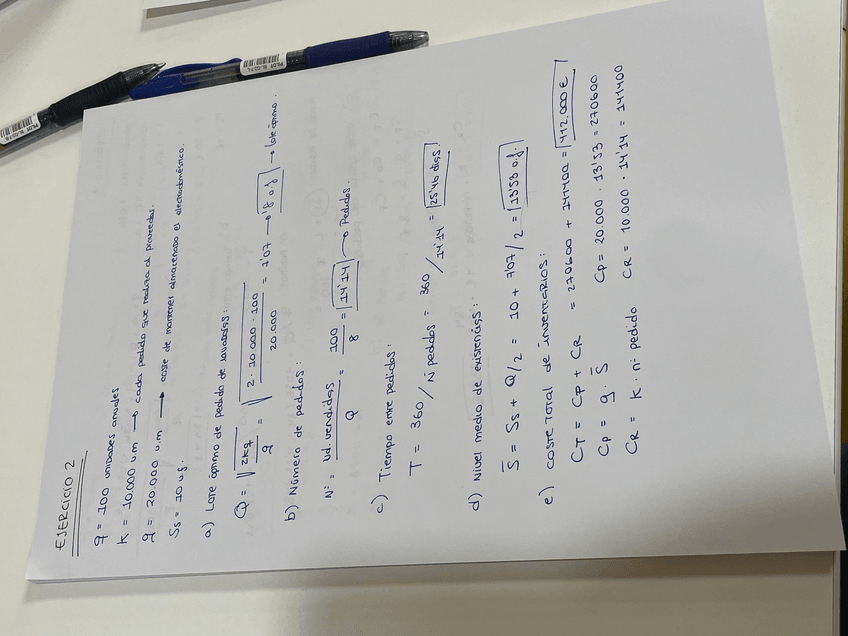 EJERCICIO 2
q = 100 unidades anuales
K = 10.000 u.m → cada pedido que realiza al proveedor.
g = 20.000 u.m → coste de mantener almacenado el electrodoméstico.
Ss = 10 u.f.
a) Lote óptimo de pedido de lavadoras:
Q = √2Kq/g = √2·10.000·100/20.000 = 7'07 → 8 u.f → lote óptimo.
b) Número de pedidos:
Nº = Ud. vendidas/Q = 100/8 = 14'14 → Pedidos.
c) Tiempo entre pedidos:
T = 360/Nº pedidos = 360/14'14 = 25'46 días
d) Nivel medio de existencias:
S̄ = Ss + Q/2 = 10 + 7'07/2 = 13'53 u.f.
e) COSTE TOTAL DE INVENTARIOS:
CT = CP + CR = 270600 + 141400 = 412.000 €
CP = g · S̄ CP = 20.000 · 13'53 = 270600
CR = K · nº pedido CR = 10.000 · 14'14 = 141400
PILOT
PILOT